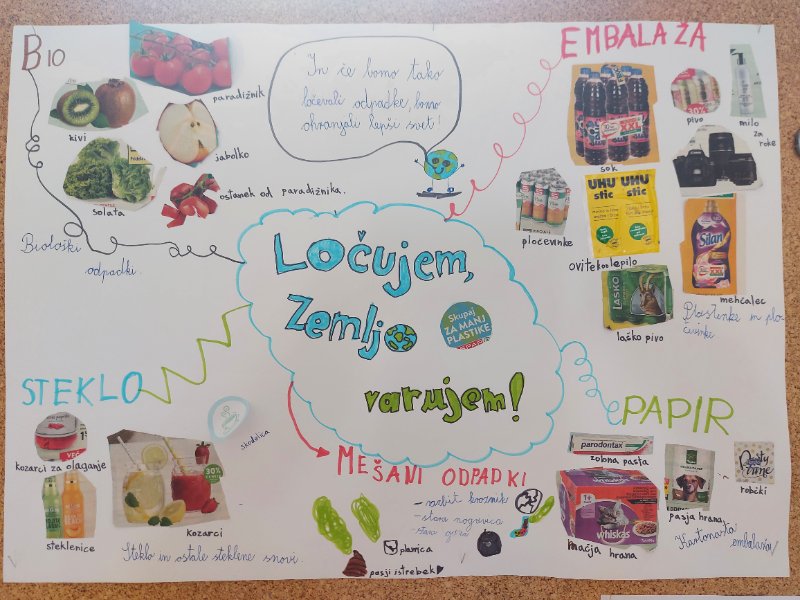 BIO
paradižnik
kivi
jabolko
solata
ostanek od paradižnika.
Biološki
odpadki.
In če bomo tako
ločevali odpadke, bomo
ohranjali lepši svet!
EMBALAŽA
sok
XXL
pivo
30%
milo
za
roke
pločevinke
UHU
stic
UHU
stic
ovitek od lepilo
Silan
XXL
mehčalec
LAŠKO
laško pivo
Plastenke in plo-
čevinke
Ločujem,
Zemljo
varujem!
Skupaj
ZA MANJ
PLASTIKE
STEKLO
kozarci za vlaganje
skodelica
30%
steklenice
kozarci
Steklo in ostale steklene snovi.
MEŠANI ODPADKI
- razbit krožnik
- stara nogavica
plenica
pasji iztrebek
PAPIR
parodontax
zobna pasta
1+
whiskas
mačja hrana
pasja hrana
Party
Time
robčki
Kartonasta
embalaža